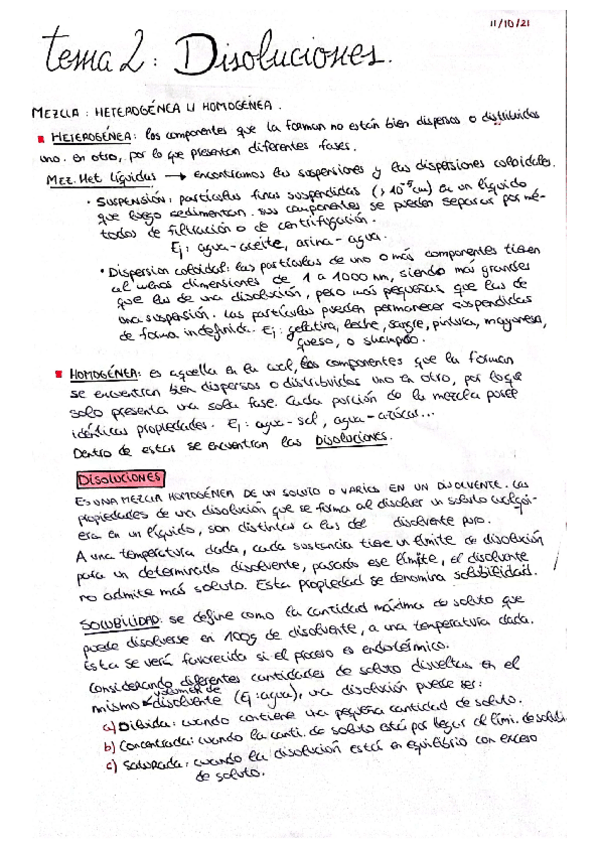 11/10/21
tema 2: Disoluciones.
MEZCLA: HETEROGÉNEA U HOMOGÉNEA.
HETEROGÉNEA: los componentes que la forman no están bien dispersos o distribuidos
uno en otro, por lo que presentan diferentes fases.
Mez. Het líquidas → encontramos las suspensiones y las dispersiones coloidales.
• SUSPENSIÓN: partículas finas suspendidas (>10⁻⁵cm) en un líquido
que luego sedimentan. sus componentes se pueden separar por mé-
todos de filtración o de centrifugación.
Ej: agua-aceite, arina-agua.
• Dispersion coloidal: las partículas de uno o más componentes tienen
al menos dimensiones de 1 a 1000 nm, siendo más grandes
que las de una disolución, pero más pequeñas que las de
una suspensión. Las partículas pueden permanecer suspendidas
de forma indefinida. Ej: gelatina, leche, sangre, pintura, mayonesa,
queso, o
HOMOGÉNEA: es aquella en la cual, los componentes que la forman
se encuentran bien dispersos o distribuidos uno en otro, por lo que
solo presenta una sola fase. Cada porción de la mezcla posee
idénticas propiedades. Ej: agua-sal, agua-azúcar...
Dentro de estas se encuentran las DISOLUCIONES.
DISOLUCIONES
ES UNA MEZCLA HOMOGÉNEA DE UN SOLUTO O VARIOS EN UN DISOLVENTE. Las
propiedades de una disolución que se forma al disolver un soluto cualqui-
era en un líquido, son distintas a las del disolvente puro.
A una temperatura dada, cada sustancia tiene un límite de disolución
para un determinado disolvente, pasado ese límite, el disolvente
no admite más soluto. Esta propiedad se denomina solubilidad.
SOLUBILIDAD: se define como la cantidad máxima de soluto que
puede disolverse en 100g de disolvente, a una temperatura dada.
Esta se verá favorecida si el proceso es endotérmico.
Considerando diferentes cantidades de soluto disueltas en el
mismo volumen de disolvente (Ej: agua), una disolución puede ser:
a) Diluida: cuando contiene una pequeña cantidad de soluto.
b) Concentrada: cuando la canti. de soluto está por llegar al lími. de solubi.
c) Saturada: cuando la disolución está en equilibrio con exceso
de soluto.